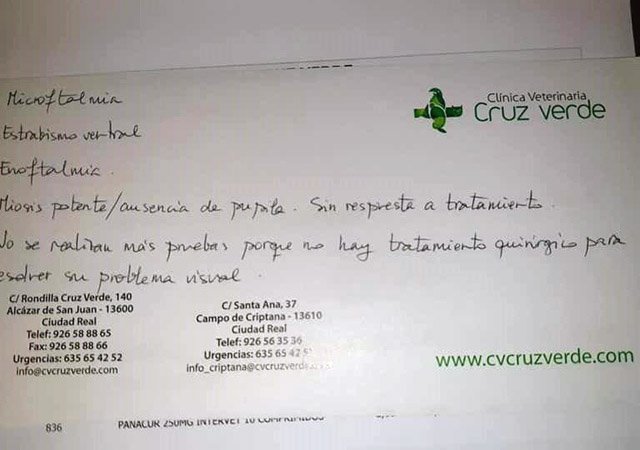 Clínica Veterinaria
Cruz verde
Microftalmia
Estrabismo ventral
Enoftalmia.
Miosis potente/ausencia de pupila. Sin respuesta a tratamiento.
No se realizan más pruebas porque no hay tratamiento quirúrgico para
resolver su problema visual.
C/ Rondilla Cruz Verde, 140
Alcázar de San Juan - 13600
Ciudad Real
Telef: 926 58 88 65
Fax: 926 58 88 66
Urgencias: 635 65 42 52
info@cvcruzverde.com
C/ Santa Ana, 37
Campo de Criptana - 13610
Ciudad Real
Telf: 926 56 35 36
Urgencias: 635 65 42 5
info_criptana@cvcruzverde
www.cvcruzverde.com
836
PANACUR 250MG INTERVET 10 COMPRIMIDOS